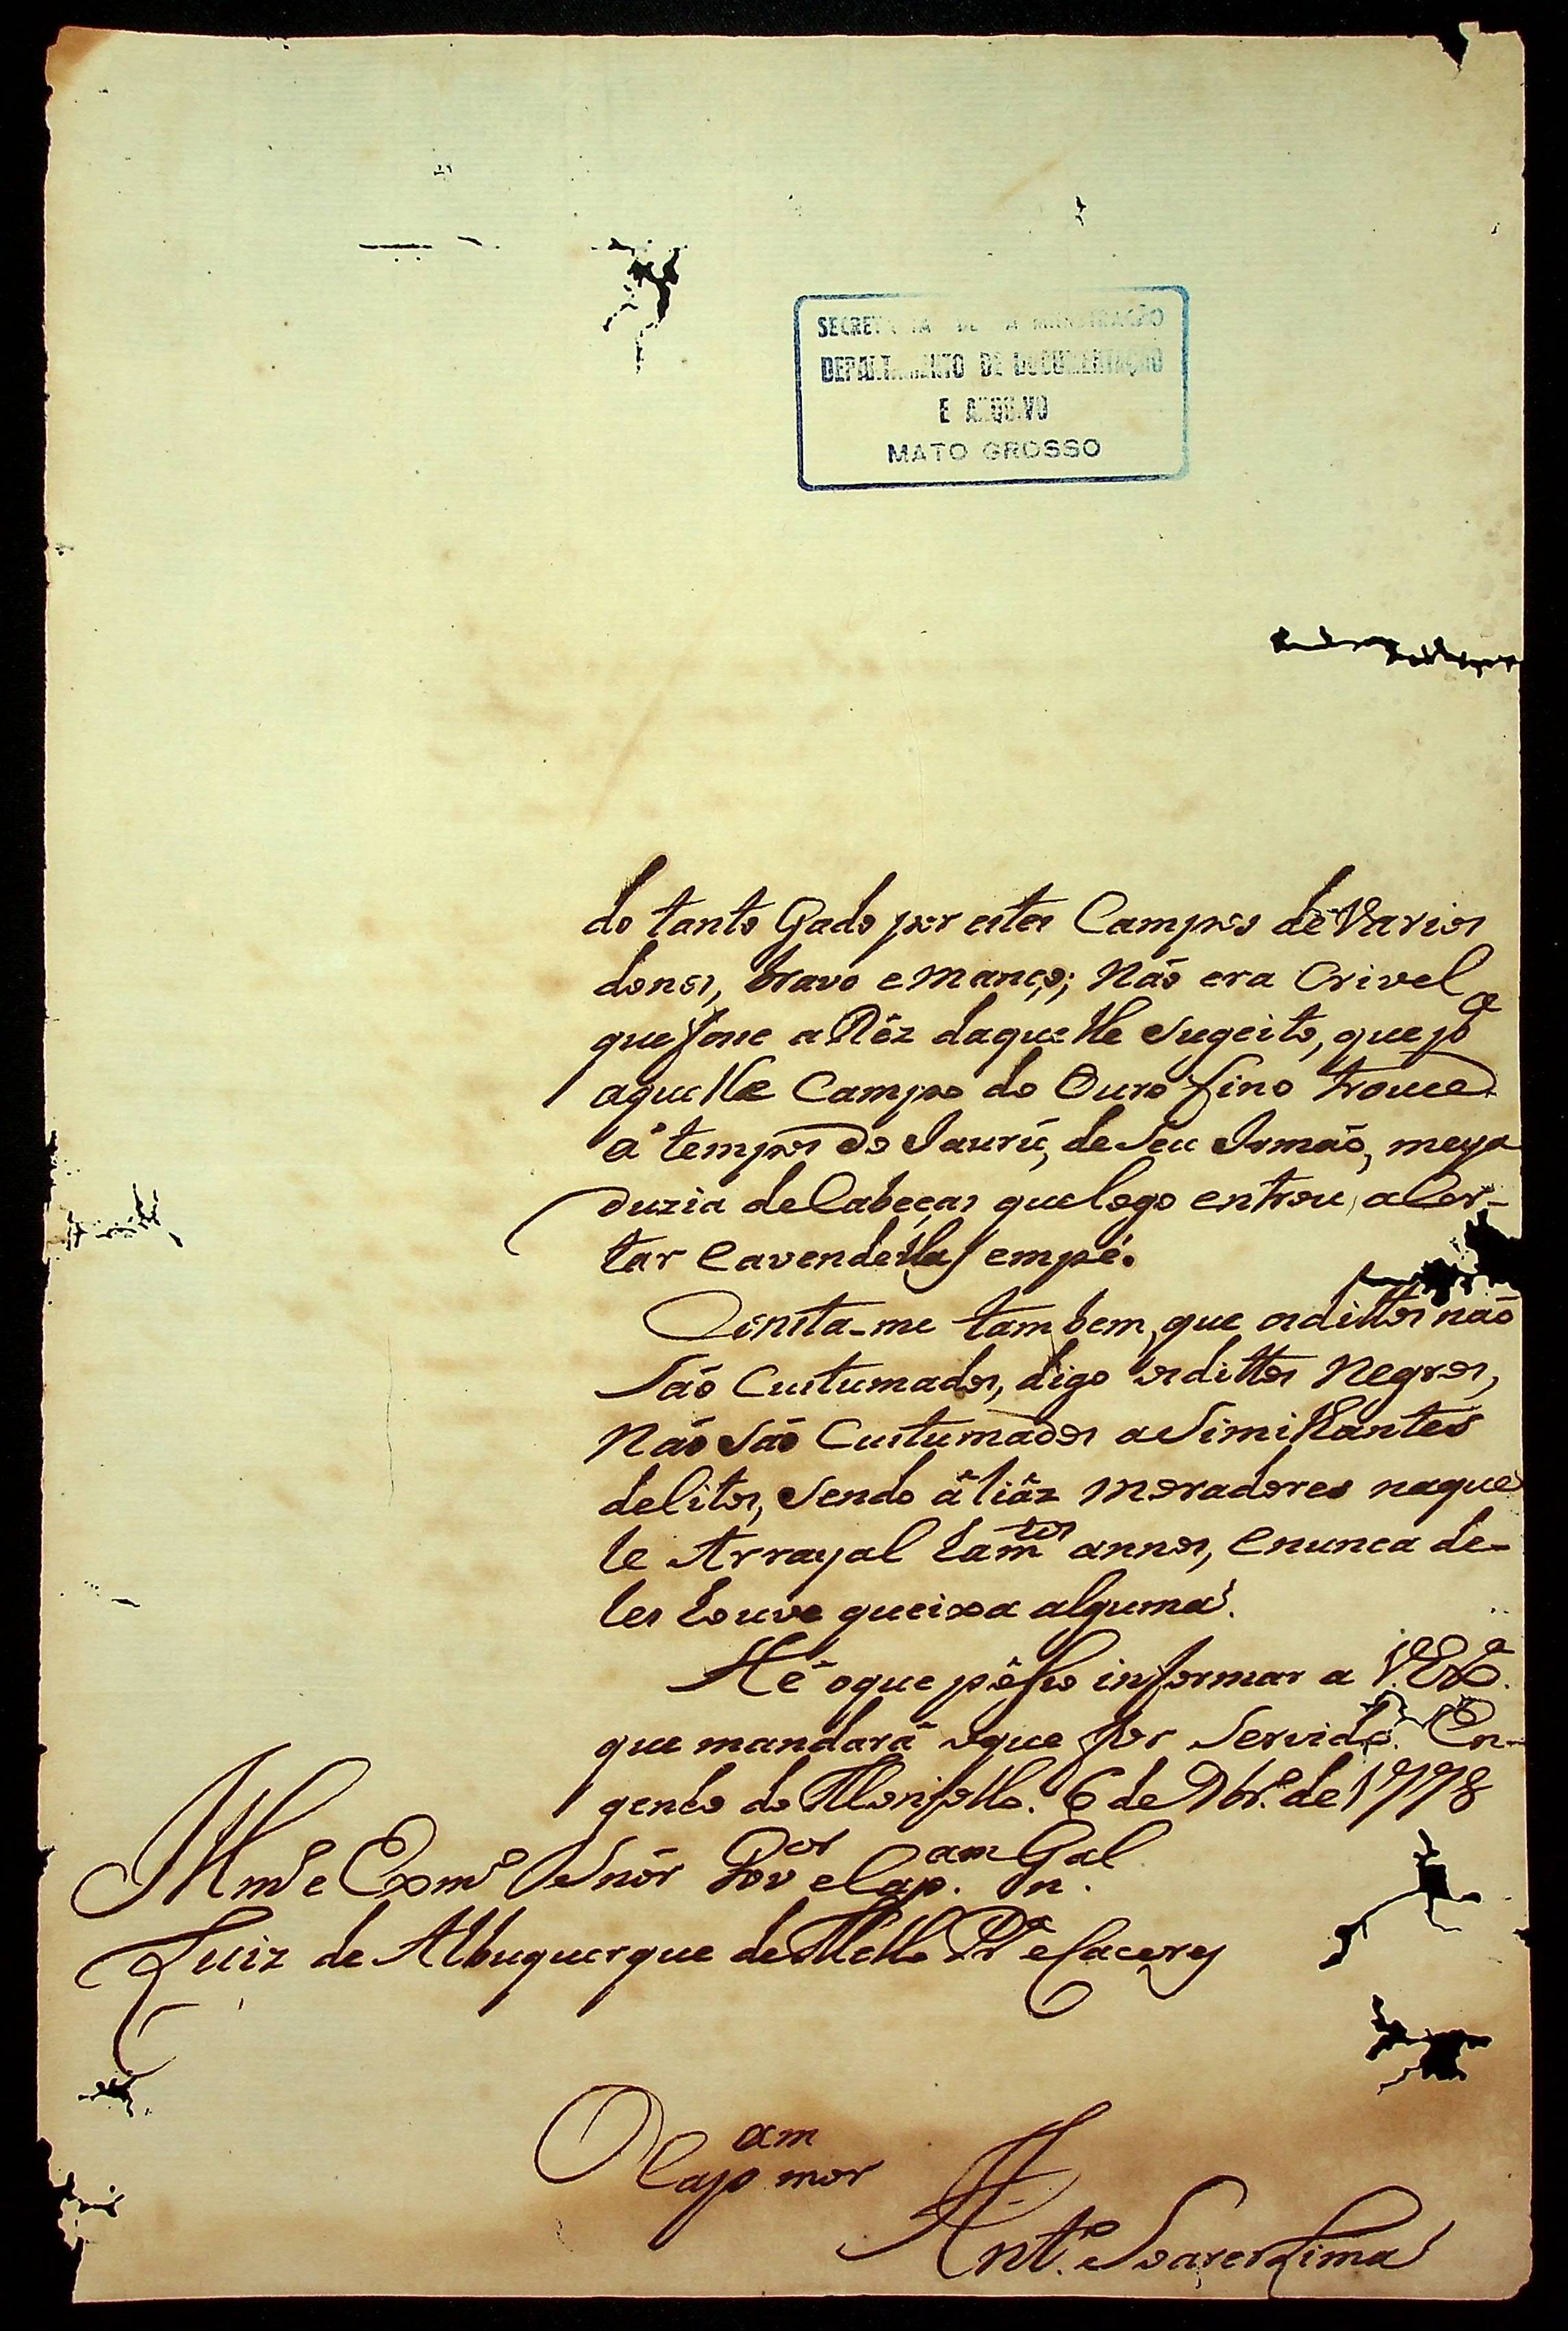 SECRETARIA DE ADMINISTRAÇÃO
DEPARTAMENTO DE DOCUMENTAÇÃO
E ARQUIVO
MATO GROSSO
do tanto Gado por estes Campos de Varios
donos, bravo e manço; Não era Crivel
que fosse a Rêz daquelle Sugeito, que pª
aquelle Campo do Ouro fino trouce
á tempos do Jaurú, de Seu Irmão, meya
duzia de Cabeças que logo entrou, a Cor-
tar e a vendella em pé.
Consta-me tambem, que os dittos não
São Custumados, digo os dittos Negros,
Não São Custumados a Similhantes
delitos, Sendo áliáz moradores naque
le Arrayal ham.tos annos, e nunca de-
les houve queixa alguma.
Hé o que pósso informar a V. Exª.
que mandará o que for Servido. En-
genho do Monjollo. 6 de 9br.º de 1778
Illmº e Exmº Snór Gov.or e Cap.am Gn.al
Luiz de Albuquerque de Mello Prª e Caceres
O Cap.am mor
Antº. Soares Lima